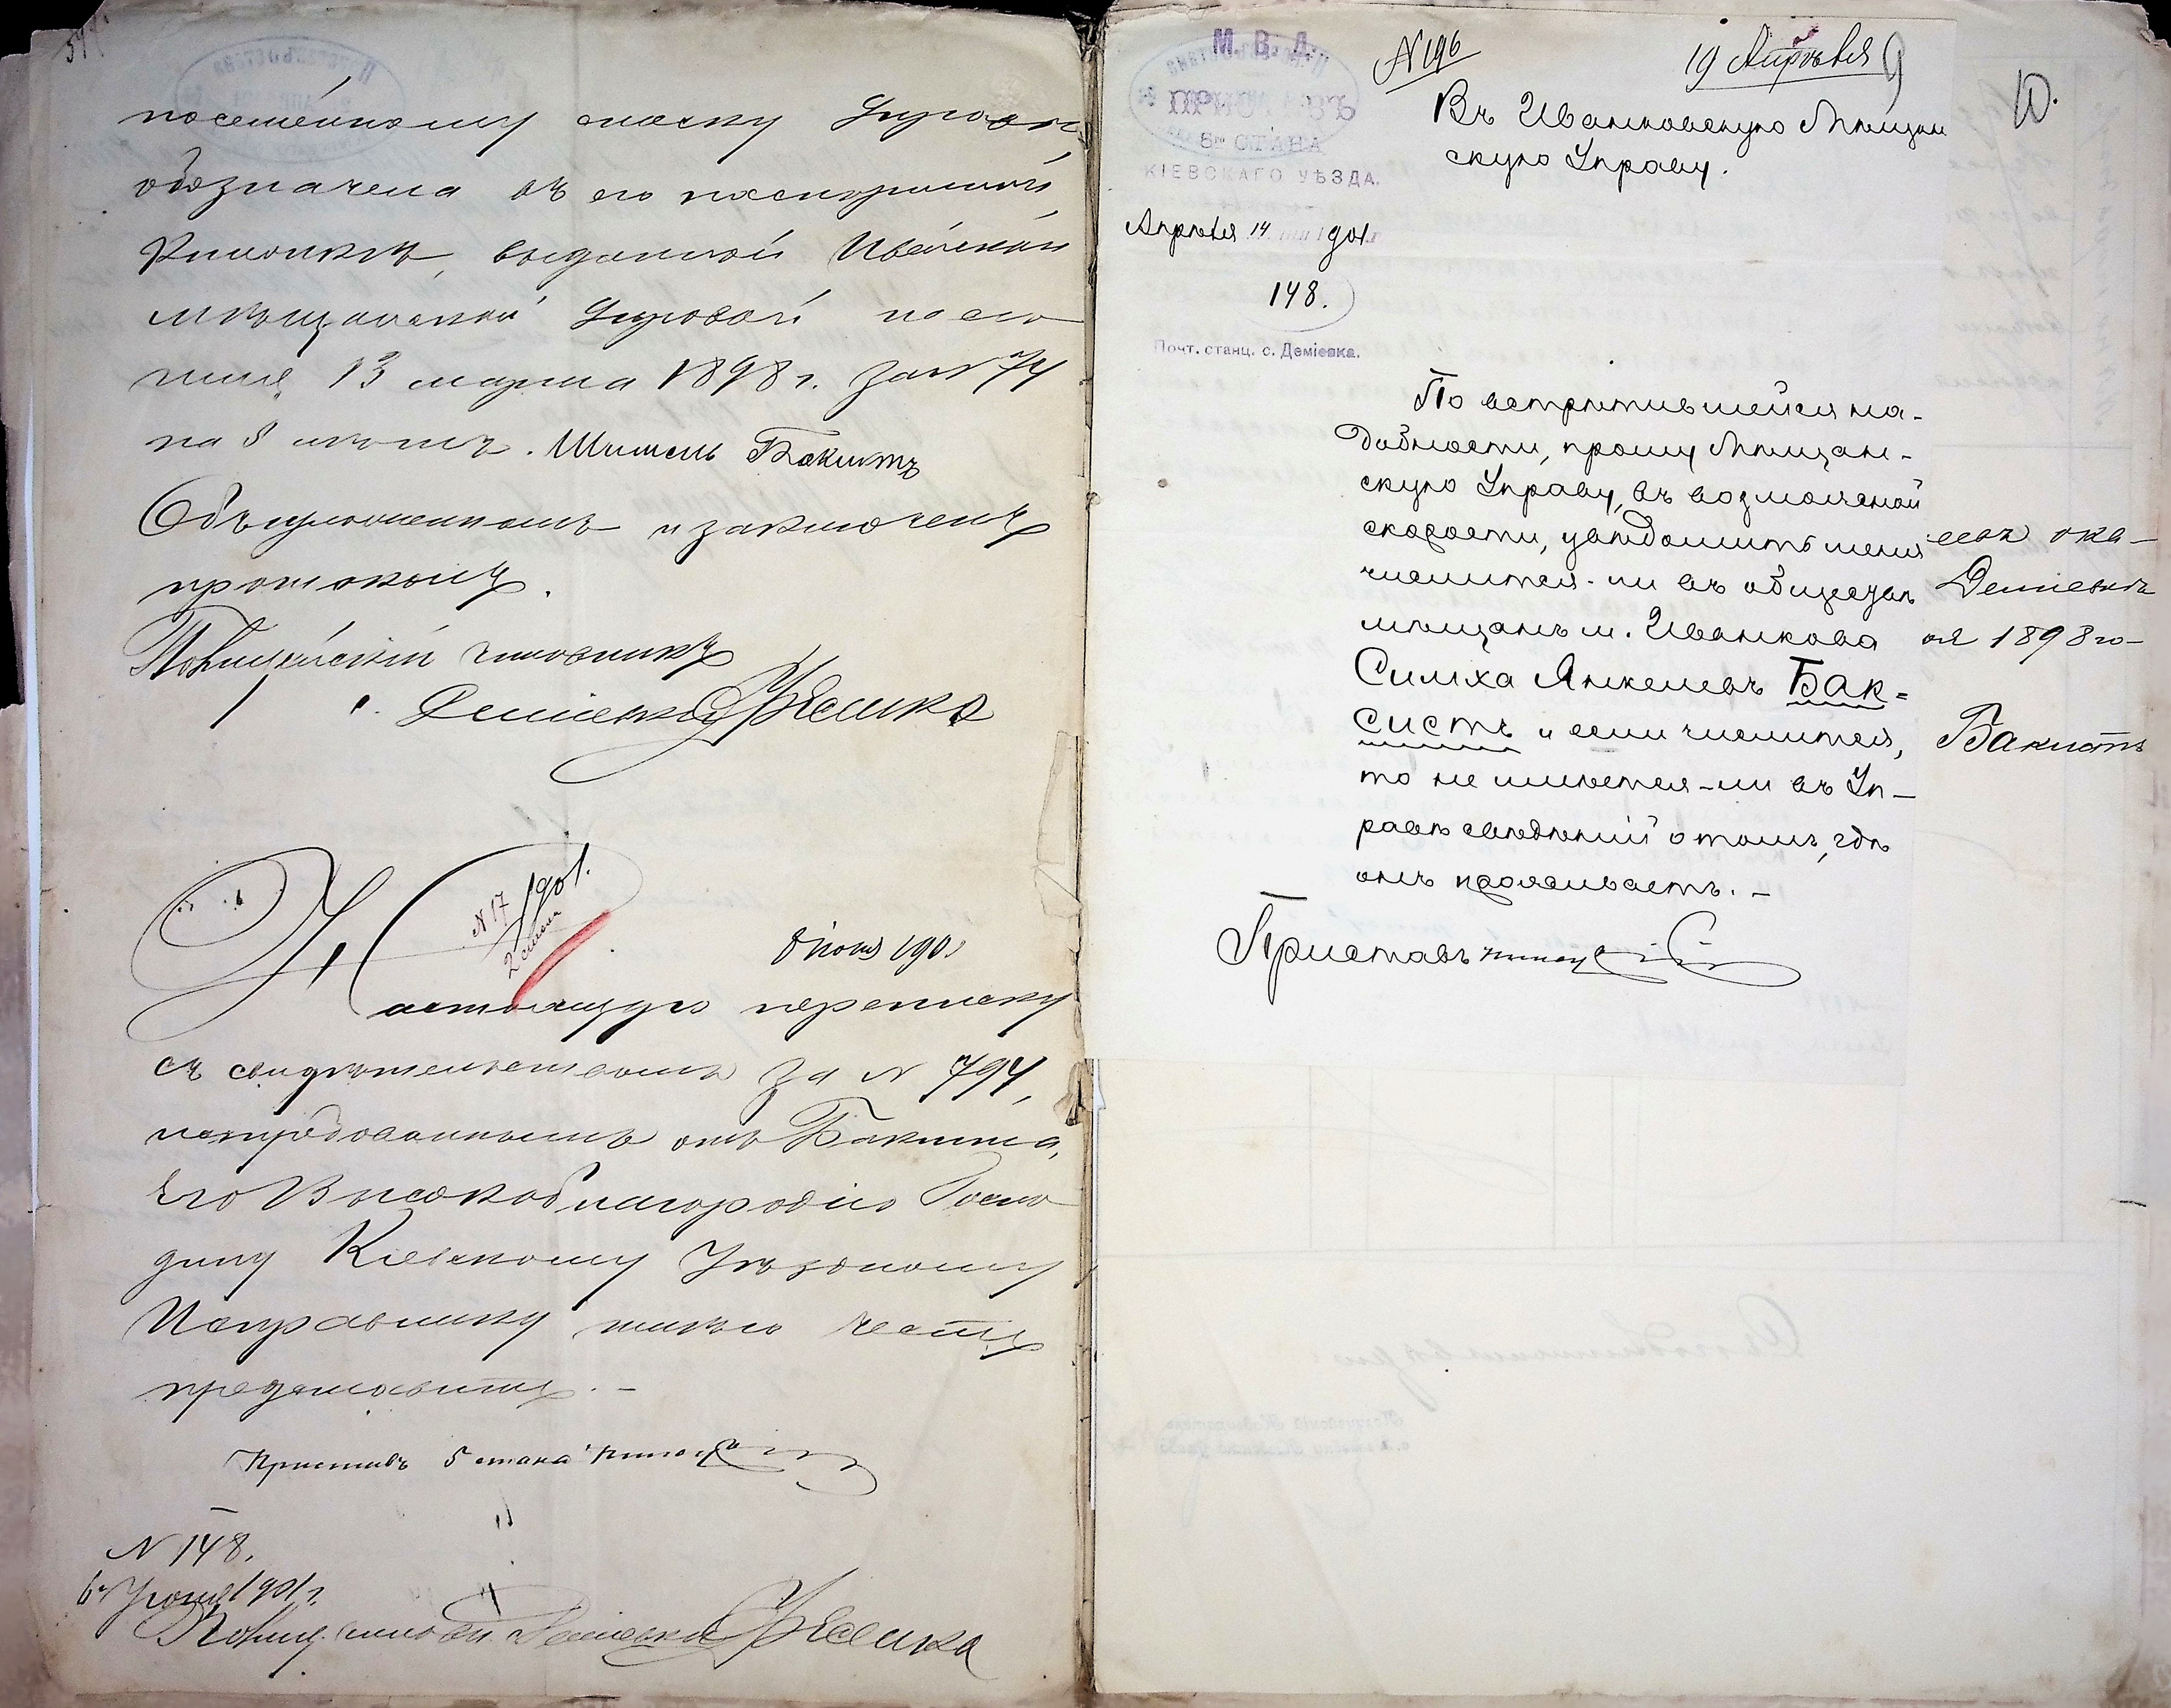 посемейному списку
обозначена въ его паспортной
книжкѣ, выданной Иванков
мѣщанской Управой
13 марта 1898 г. за № 74
на 5 лѣтъ. Шимель Бакистъ
и заключенъ
протоколъ.
Полицейскій чиновникъ
№ 17
1901.
2 стана
8 іюня 1901
Настоящую переписку
съ свидѣтельствомъ за № 794,
отъ Бакиста,
Его Высокоблагородію Госпо
дину Кіевскому Уѣздному
Исправнику имѣю честь
представить. –
Приставъ 5 стана
№ 148.
6 Іюня 1901 г.
М. В. Д.
ПРИСТАВЪ
5го СТАНА
КІЕВСКАГО УѢЗДА.
Апрѣля 14 1901 г.
148.
Почт. станц. с. Деміевка.
№ 196
19 Апрѣля
10.
Въ Иванковскую Мѣщан
скую Управу.
По встрѣтившейся на-
добности, прошу Мѣщан-
скую Управу, въ возможной
скорости, увѣдомить меня
числится-ли въ обществѣ
мѣщанъ м. Иванкова
Симха Янкелевъ Бак-
систъ и если числится,
то не имѣется-ли въ Уп-
равѣ свѣдѣній о томъ, гдѣ
онъ проживаетъ. –
Приставъ
ока-
Деміевкѣ
1898 го-
Бакистъ